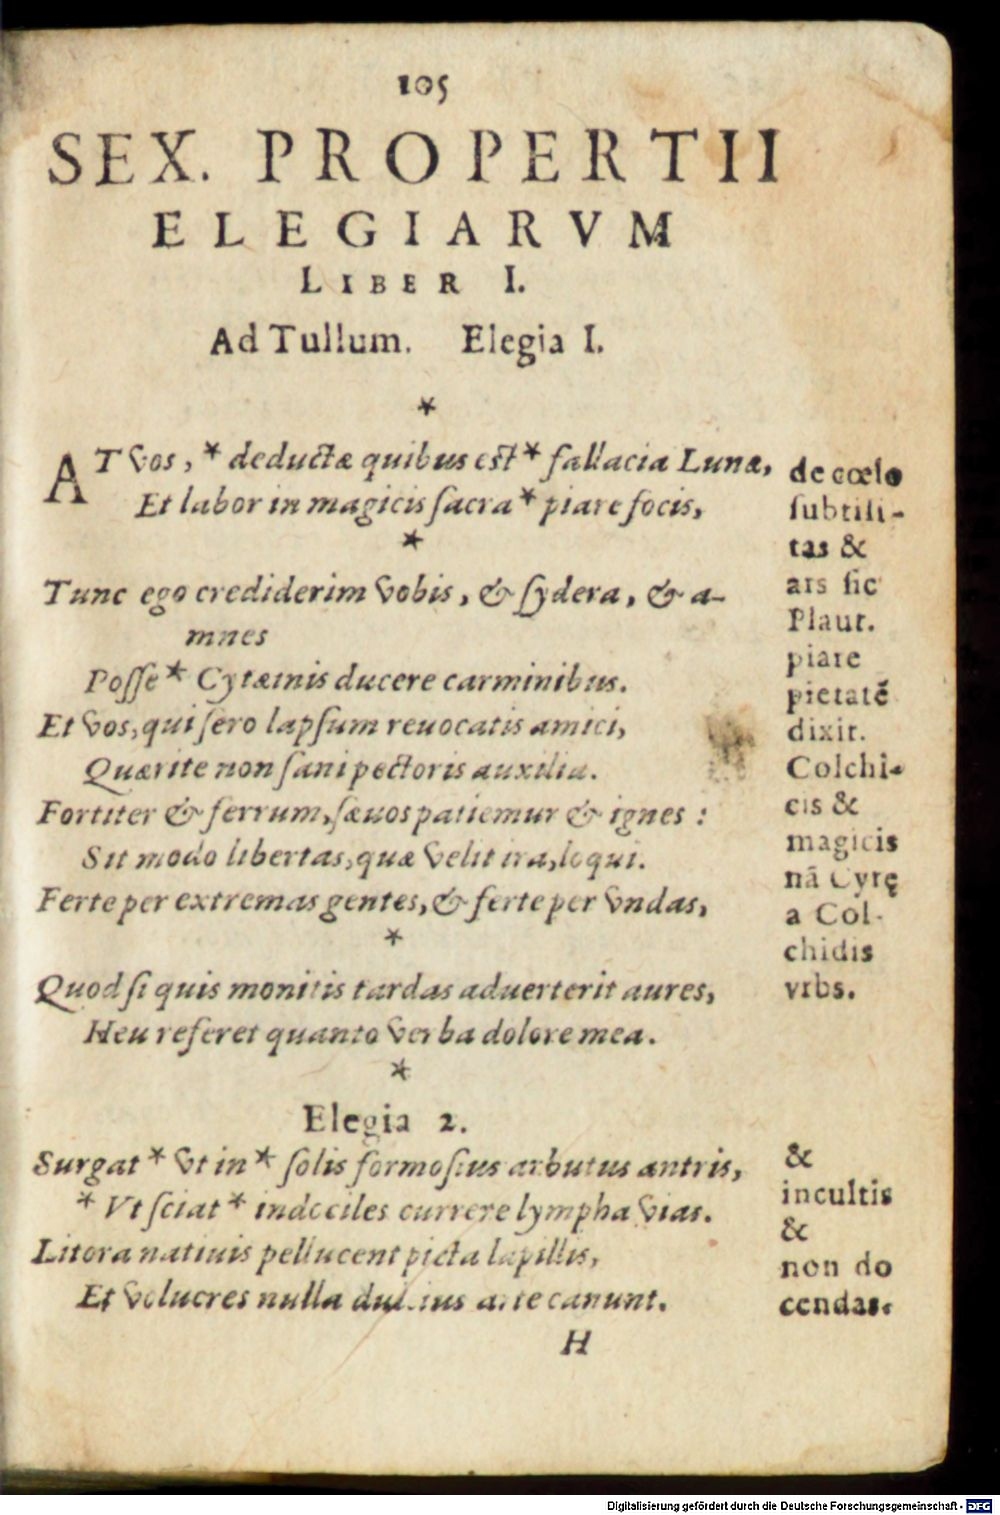 105
SEX. PROPERTII
ELEGIARVM
LIBER I.
Ad Tullum. Elegia I.
*
AT vos, * deductæ quibus est * fallacia Lunæ,
Et labor in magicis sacra * piare focis,
*
Tunc ego crediderim vobis, & sydera, & a-
mnes
Posse * Cytæinis ducere carminibus.
Et vos, qui sero lapsum reuocatis amici,
Quærite non sani pectoris auxilia.
Fortiter & ferrum, sæuos patiemur & ignes :
Sit modo libertas, quæ velit ira, loqui.
Ferte per extremas gentes, & ferte per vndas,
*
Quod si quis monitis tardas aduerterit aures,
Heu referet quanto verba dolore mea.
*
de cœlo
subtili-
tas &
ars sic
Plaut.
piare
pietatē
dixit.
Colchi-
cis &
magicis
nā Cytę
a Col-
chidis
vrbs.
Elegia 2.
Surgat * vt in * solis formosius arbutus antris,
* Vt sciat * indociles currere lympha vias.
Litora natiuis pellucent picta lapillis,
Et volucres nulla dulcius arte canunt.
&
incultis
&
non do
cendas.
H
Digitalisierung gefördert durch die Deutsche Forschungsgemeinschaft - DFG